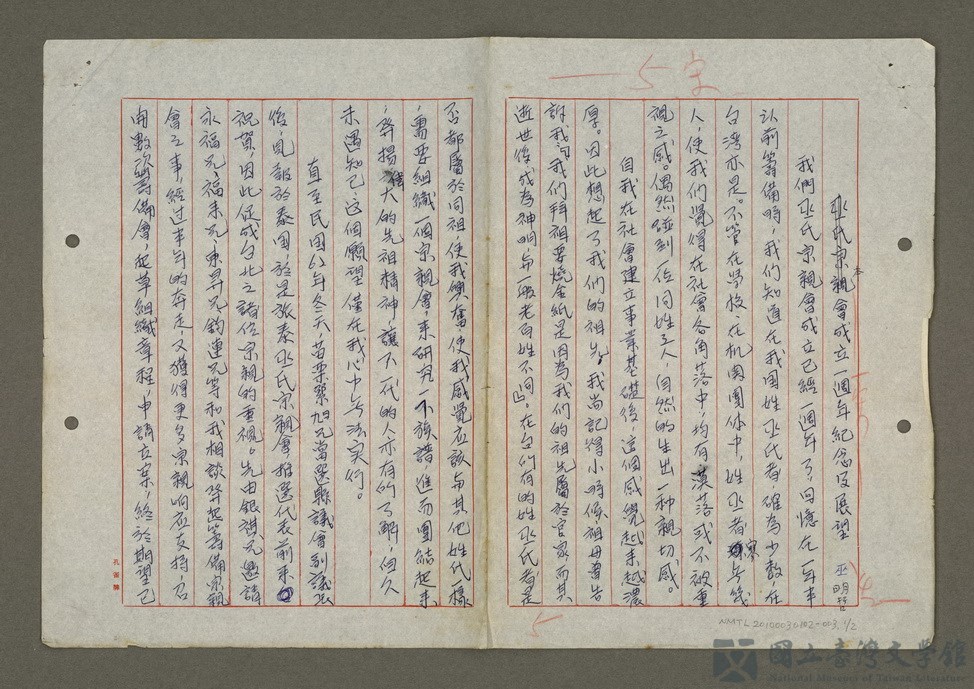 一5字
巫氏宗親會成立一週年紀念及展望 巫明哲
本
我們巫氏宗親會成立已經一週年了,回憶在一年半
以前籌備時,我們知道在我国姓巫氏者,確為少数,在
台湾亦是。不管在学校、在机関團体中,姓巫者寥々無幾
人,使我們覺得在社會各角落中,均有漠落或不被重
視之感。偶然碰到一位同姓之人,自然的生出一种親切感。
自我在社會建立事業基礎後,這個感覺越来越濃
厚。因此想起了我们的祖先,我尚記得小時候祖母曾告
訴我:「我们拜祖要燒金紙是因為我们的祖先屬於官家而其
逝世後成為神明,与一般老百姓不同」。在台湾有的姓巫氏者是
否都屬於同祖使我興奮,使我感覺应該与其他姓氏一樣
,需要組織一個宗親會,来研究一下族譜,進而團結起来
,發揚偉大的先祖精神,讓下一代的人亦有所了解,但久
未遇知己,這個願望僅在我心中無法実行。
直至民国62年冬天,苗栗縣 九兄當選縣議會副議長
後,風聞於泰国,於是旅泰巫氏宗親會推選代表前来
祝賀,因此促成台北之諸位宗親的重視。先由銀祺兄邀請
永福兄、福来兄、東昇兄、鈞連兄等和我相談發起籌備宗親
會之事,經过半年的奔走,又獲得更多宗親响应支持,召
開數次籌備會,起草組織章程,申請立案,終於期望已
孔雀牌
5
NMTL 20100030182-003, 1/2
國立臺灣文學館
National Museum of Taiwan Literature